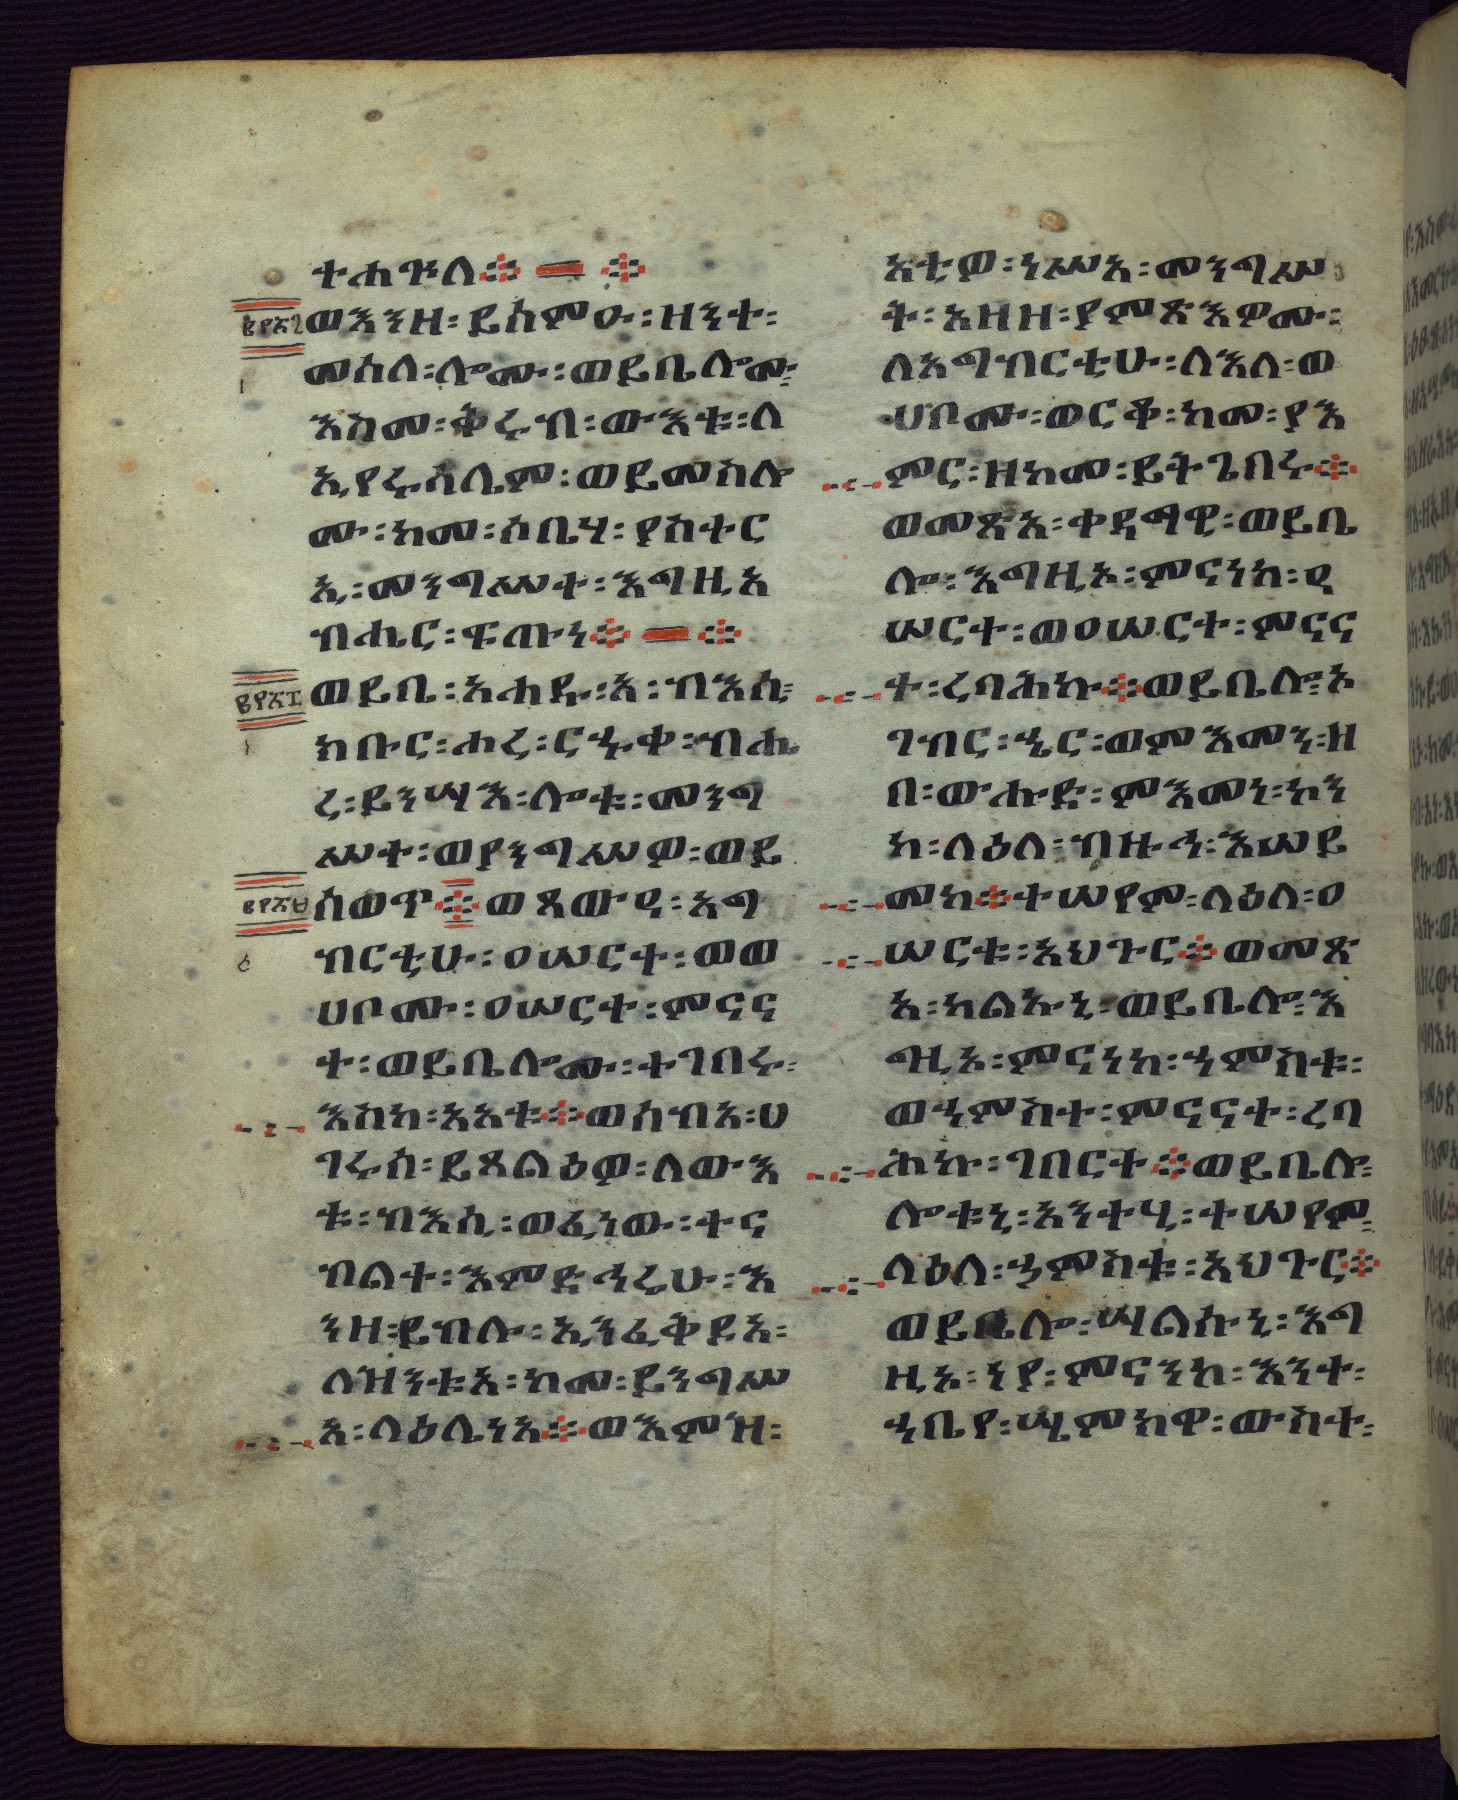 ተሐጕለ፨ ፨
ወእንዘ፡ይሰምዑ፡ዘንተ፡
መሰለ፡ሎሙ፡ወይቤሎሙ፡
እስመ፡ቅሩብ፡ውእቱ፡ለ
ኢየሩሳሌም፡ወይመስሎ
ሙ፡ከመ፡ሶቤሃ፡ያስተር
ኢ፡መንግሥተ፡እግዚአ
ብሔር፡ፍጡነ፨ ፨
ወይቤ፡አሐዱ፡አ፡ብእሲ፡
ክቡር፡ሐረ፡ርኁቀ፡ብሔ
ረ፡ይንሣእ፡ሎቱ፡መንግ
ሥተ፡ወያንግሥዎ፡ወይ
ሰወጥ፨ወጸውዐ፡አግ
ብርቲሁ፡ዐሠርተ፡ወወ
ሀቦሙ፡ዐሠርተ፡ምናና
ተ፡ወይቤሎሙ፡ተገበሩ፡
እስከ፡እአቱ፨ወሰብአ፡ሀ
ገሩሰ፡ይጸልዕዎ፡ለውእ
ቱ፡ብእሲ፡ወፈነው፡ተና
ብልተ፡እምድኅሬሁ፡እ
ንዘ፡ይብሉ፡ኢንፈቅድአ፡
ለዝንቱአ፡ከመ፡ይንግሥ
አ፡ላዕሌነአ፨ወእምዝ፡
አቲዎ፡ነሥአ፡መንግሥ
ት፡አዘዘ፡ያምጽእዎሙ፡
ለአግብርቲሁ፡ለእለ፡ወ
ሀቦሙ፡ወርቆ፡ከመ፡ያእ
ምር፡ዘከመ፡ይትጌበሩ፨
ወመጽአ፡ቀዳማዊ፡ወይቤ
ሎ፡እግዚኦ፡ምናነከ፡ዐ
ሠርተ፡ወዐሠርተ፡ምናና
ተ፡ረባሕኩ፨ወይቤሎ፡ኦ
ገብር፡ኄር፡ወምእመን፡ዘ
በ፡ውሑድ፡ምእመነ፡ኮን
ከ፡ላዕለ፡ብዙኅ፡እሠይ
መከ፨ተሠየም፡ላዕለ፡ዐ
ሠርቱ፡አህጉር፨ወመጽ
አ፡ካልኡኒ፡ወይቤሎ፡እ
ግዚኦ፡ምናነከ፡ኀምስቱ፡
ወኀምስተ፡ምናናተ፡ረባ
ሕኩ፡ገበርተ፨ወይቤሎ፡
ሎቱኒ፡አንተሂ፡ተሠየም፡
ላዕለ፡ኃምስቱ፡አህጉር፨
ወይቤሎ፡ሣልሱኒ፡እግ
ዚኦ፡ነያ፡ምናንከ፡እንተ፡
ኀቤየ፡ሢምክዋ፡ውስተ፡